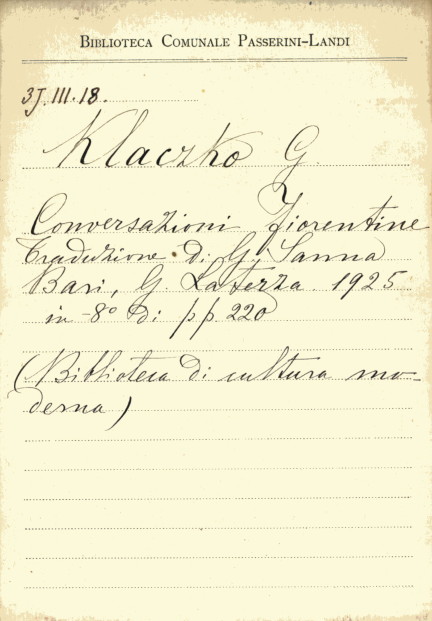 BIBLIOTECA COMUNALE PASSERINI-LANDI
3J. III. 18.
Klaczko G.
Conversazioni fiorentine
Traduzione di G. Sanna
Bari, G. Laterza 1925
in-8° di pp 220
(Biblioteca di cultura mo-
derna)